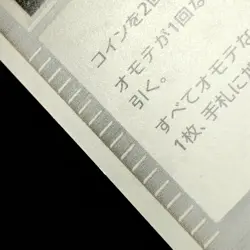 コインを2回
オモテが1回な
引く。
すべてオモテな
1枚、手札に